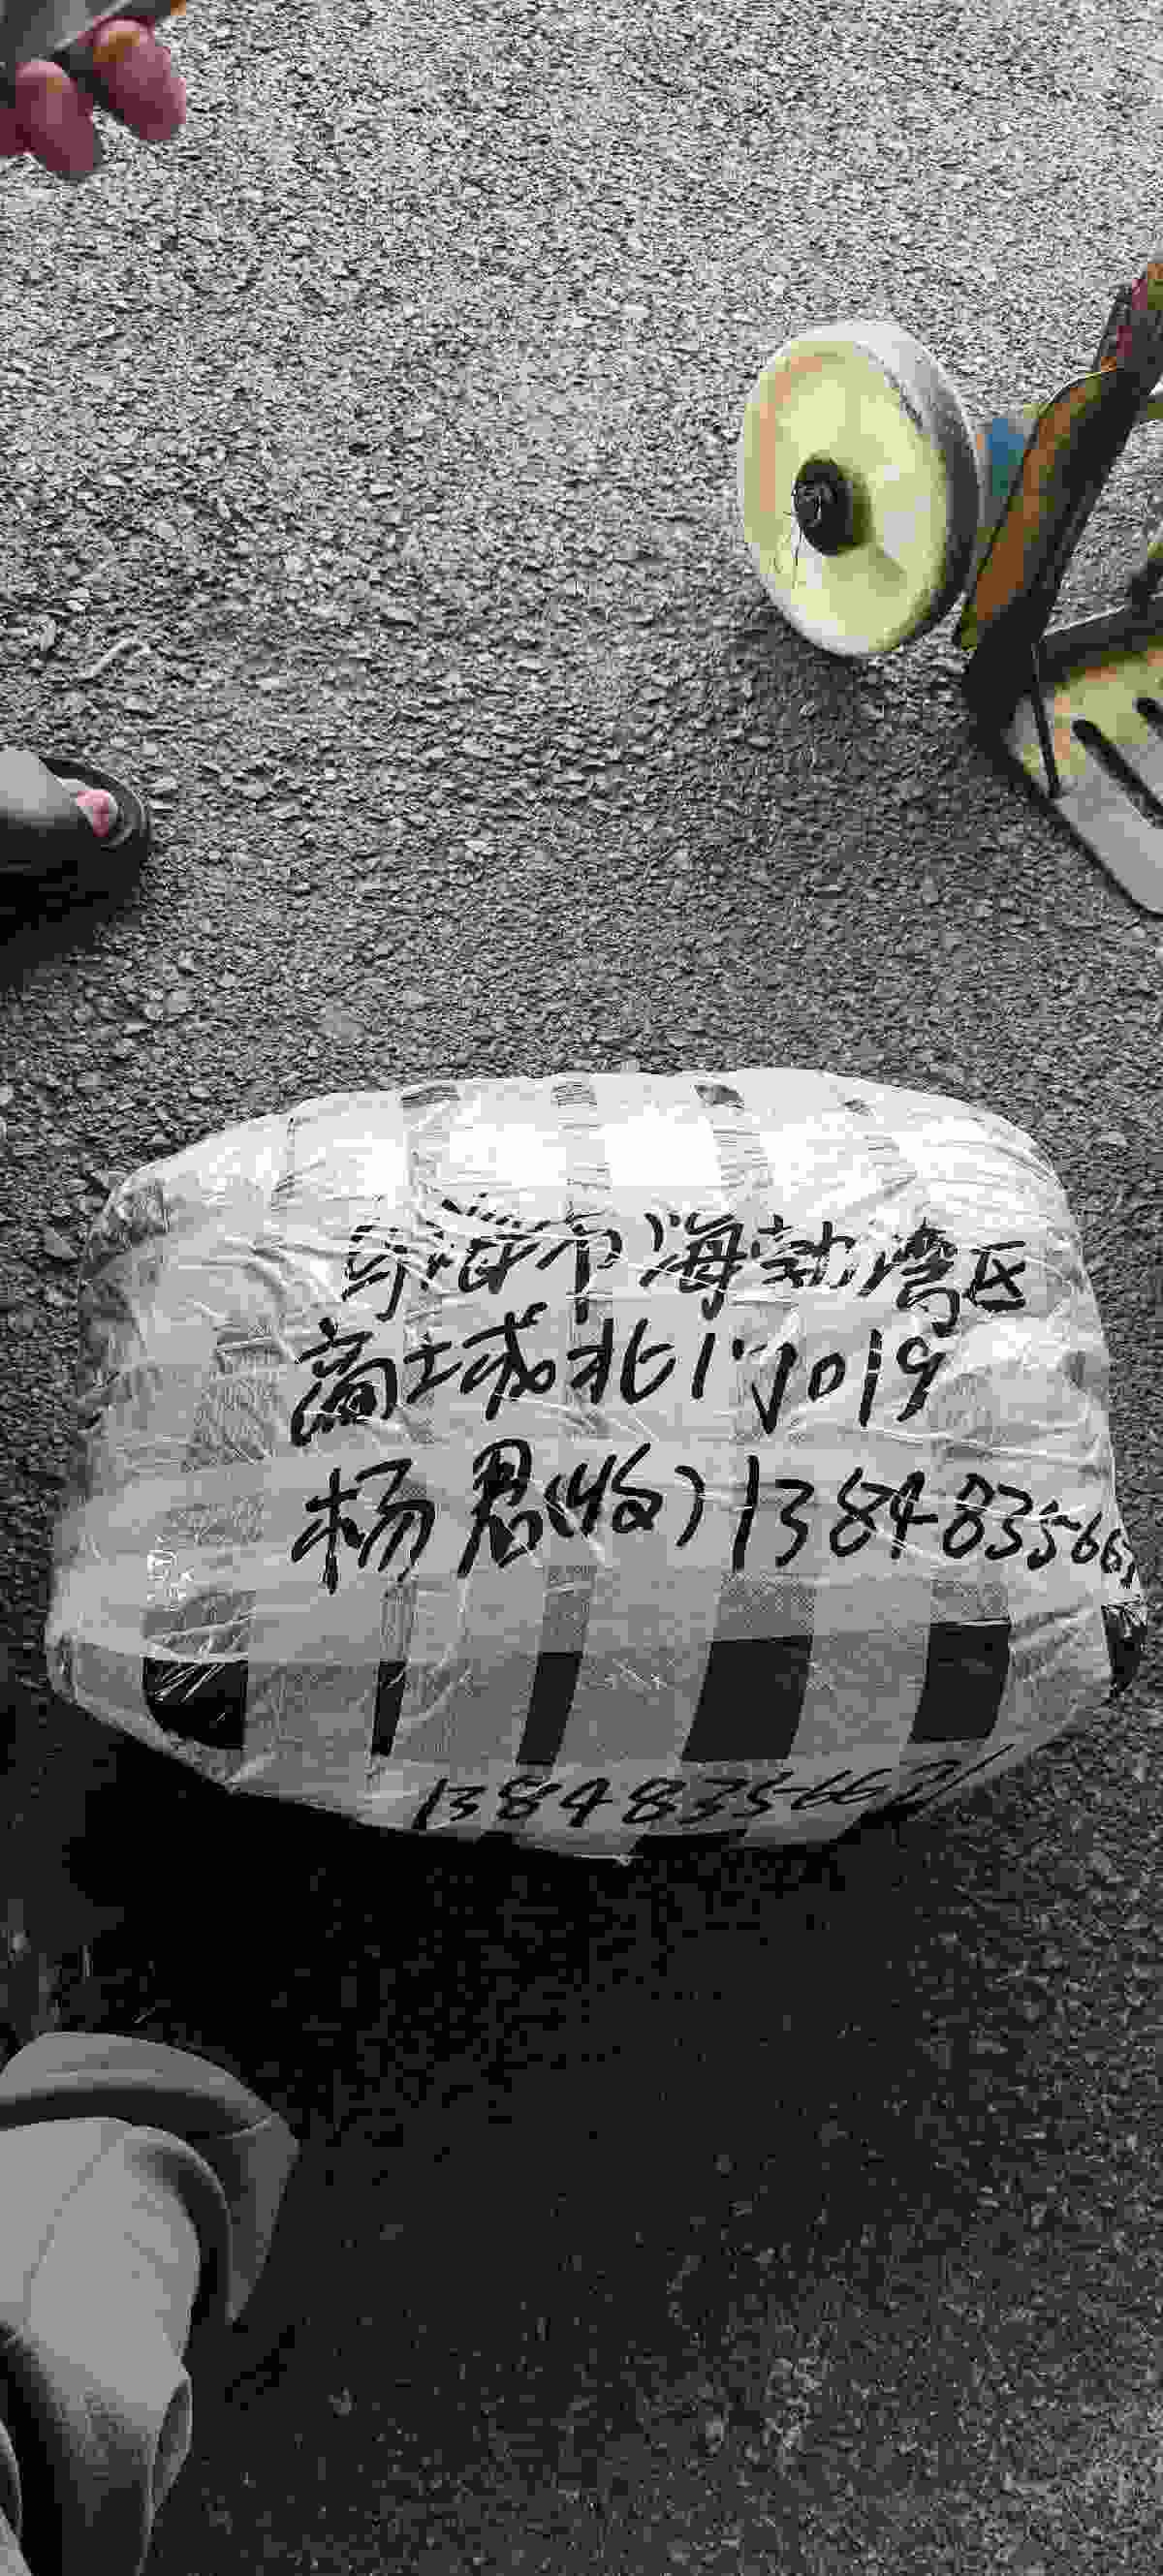 乌海市海勃湾区
商城北1门019
杨君(收)1384835662
13848356621